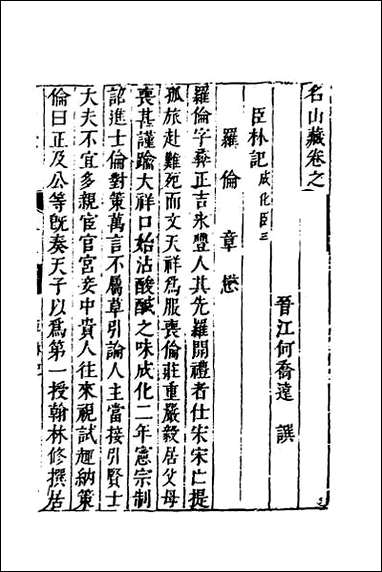 名山藏卷之
晉江何喬遠 譔
臣林記成化臣三
羅倫 章懋
羅倫字彞正吉永豐人其先羅開禮者仕宋宋亡提
孤旅赴難死而文天祥爲服喪倫莊重嚴毅居父母
喪甚謹踰大祥口始沾酸醎之味成化二年憲宗制
詔進士倫對策萬言不屬草引論人主當接引賢士
大夫不宜多親宦官宮妾中貴人往來視試趣納策
倫曰正及公等旣奏天子以爲第一授翰林修撰居